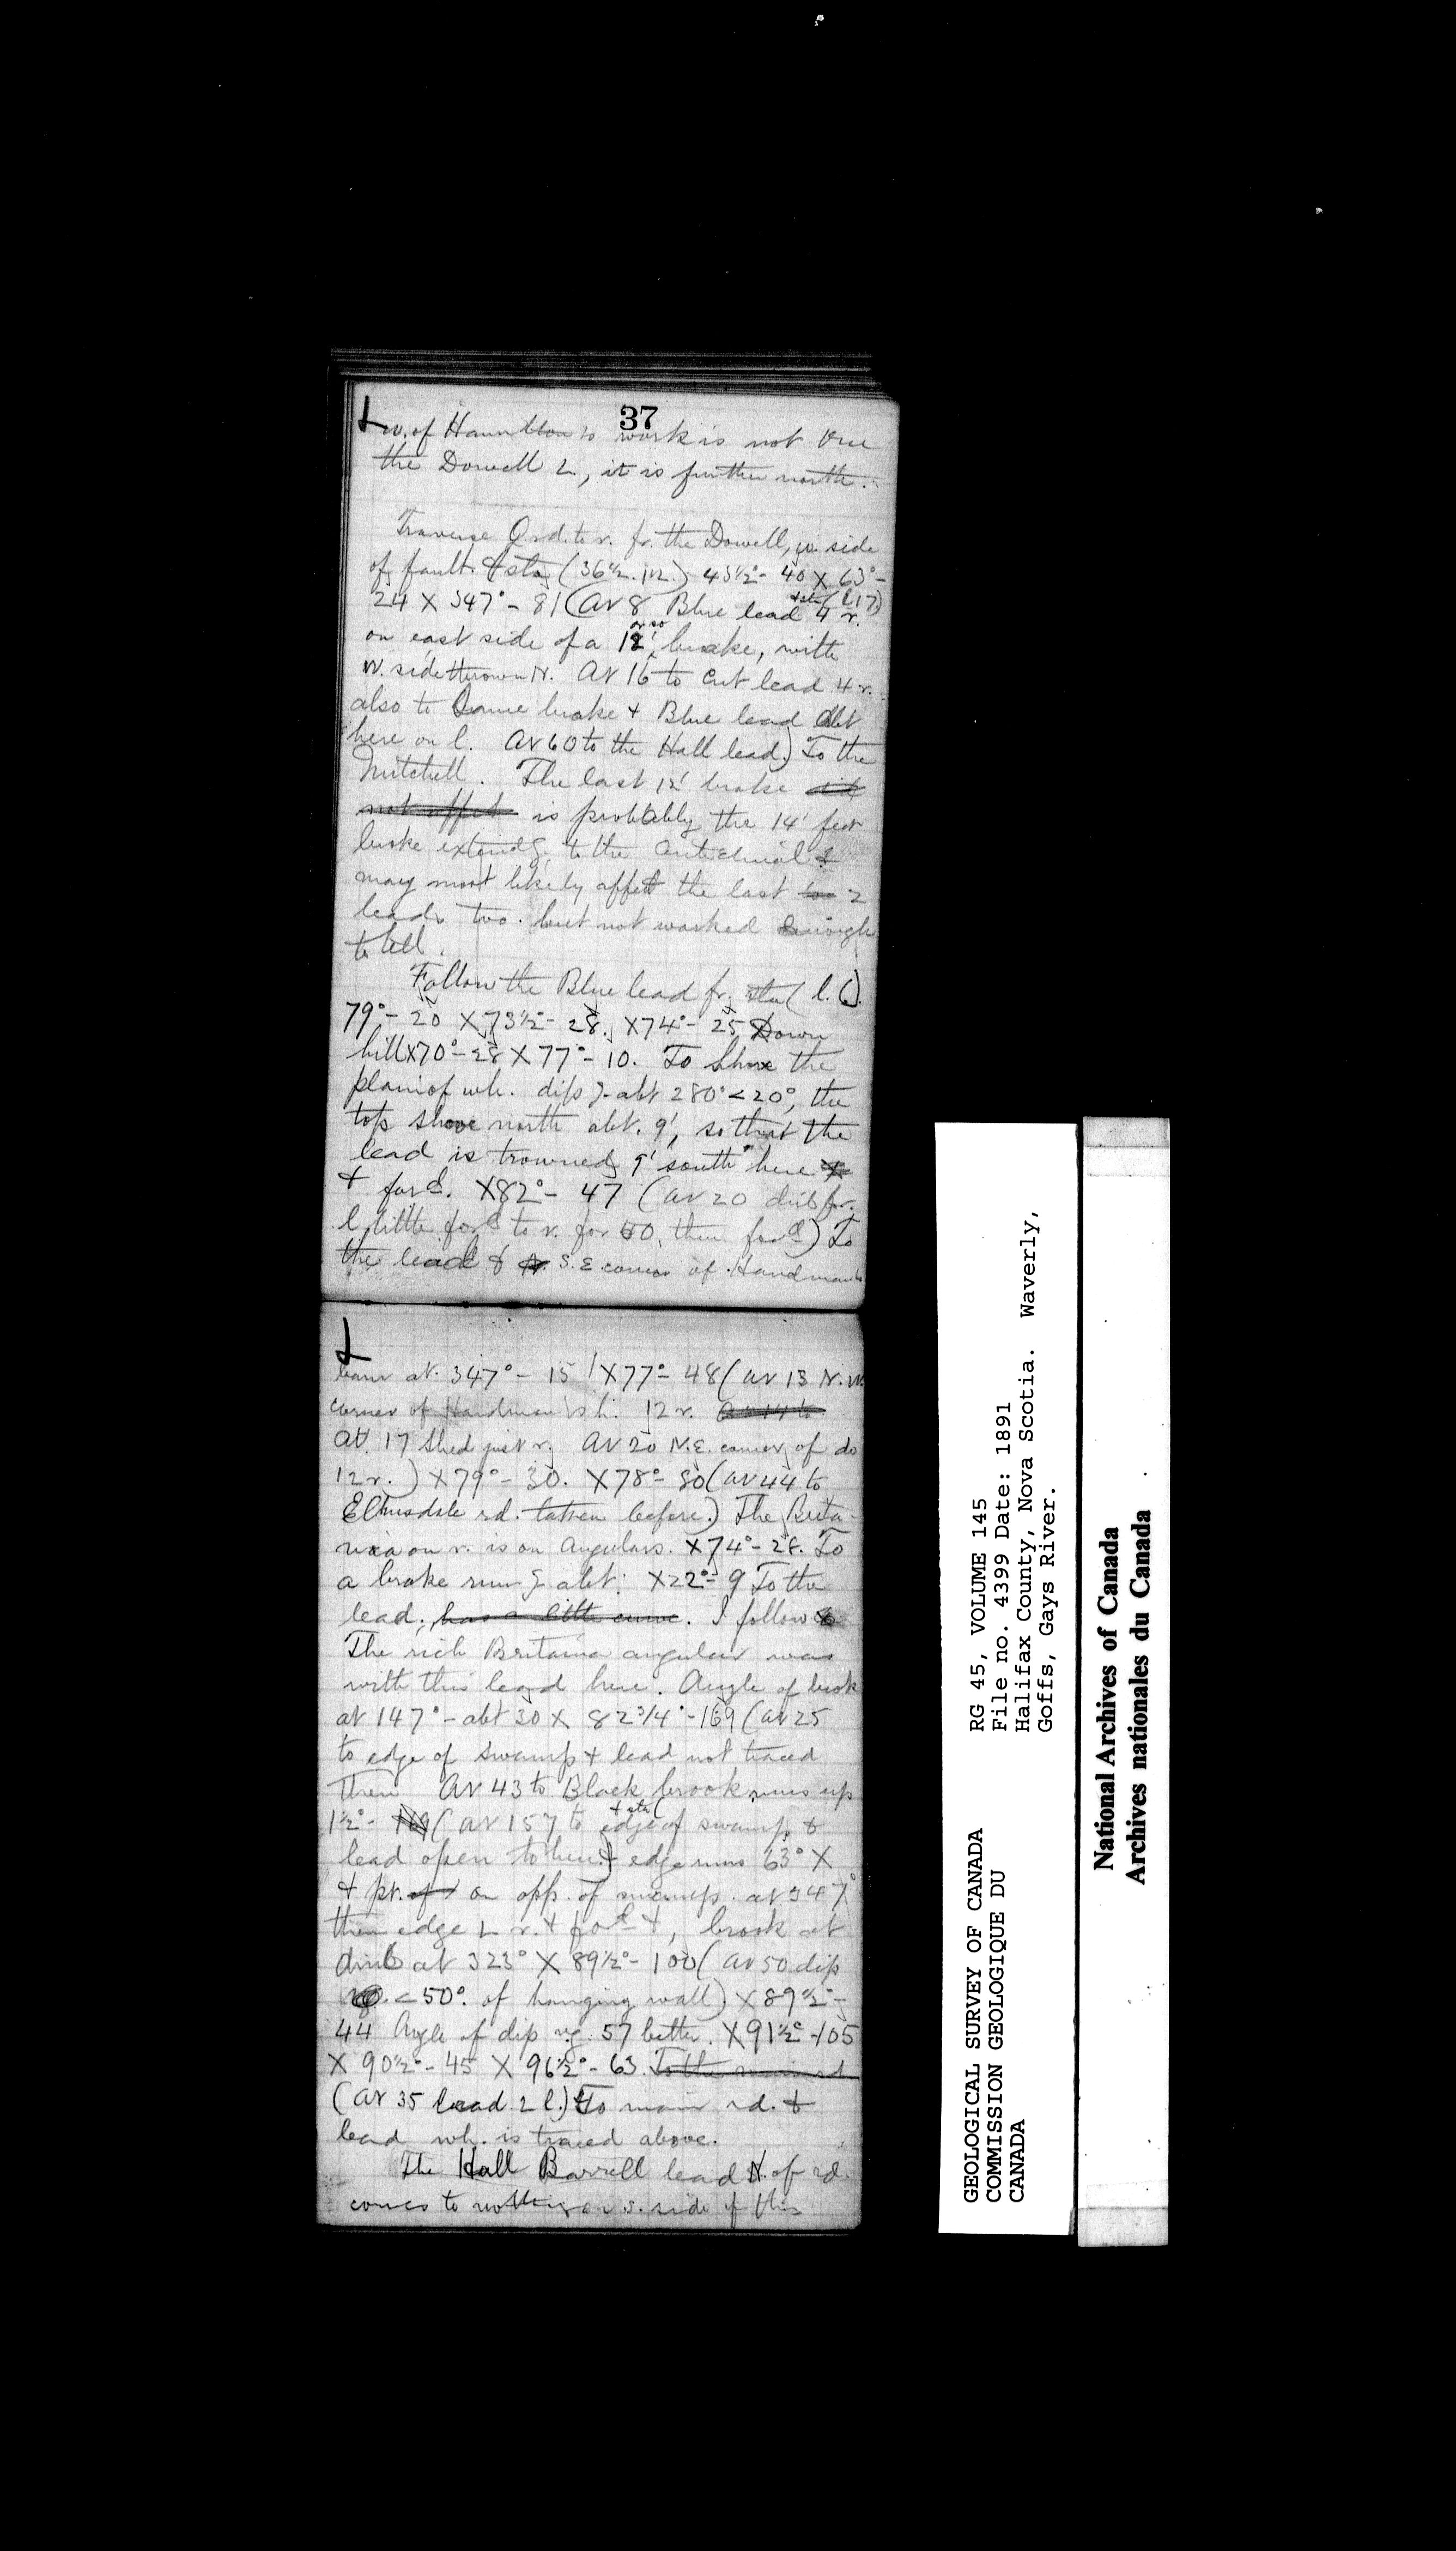 37
w. of Hamiltons work is not true
the Dowell L, it is further north.
Traverse Q rd. to r. fr. the Dowell, w. side
of fault & sta (36½. 112.) 43½°- 40 X 63°-
24 X 347°- 81 (At 8 Blue lead & sta (l 17) 4 r.
on east side of a 12' or so brake, with
W. side thrown N. At 16 to Cut lead 4 r.
also to Same brake & Blue lead abt
here on l. At 60 to the Hall lead.) To the
Mitchell. The last 12' brake did
not affect is probably the 14' feet
brake extendg to the anticlinal &
may most likely affect the last two 2
leads too. but not worked enough
to tell.
Follow the Blue lead fr. sta ( l. C).
79°- 20 X 73½°- 28. X 74°- 25 Down
hill X 70°- 28 X 77°- 10. To shove the
plain of wh. dips abt 280° < 20°, the
top shove north abt. 9', so that the
lead is trowned 9' south here
& ford. X 82°- 47 (at 20 dril for.
l little ford to r. for 50, then ford) To
the lead & S.E. corner of Handmans
barn at 347°- 15 X 77°- 48 (at 13 N.W.
corner of Handman's h. 12 r. At 14 to
at. 17 Shed just r. At 20 N.E. corner of do
12 r.) X 79°- 30. X 78°- 80 (at 44 to
Elmsdale rd. taken before.) The Brita-
nia on r. is on Angulars. X 74°- 28. To
a brake rung abt. X 22°- 9 To the
lead, has a little curve. I follow
The rich Britania angular was
with this lead here. Angle of brok
at 147°- abt 30 X 82¾°- 169 (at 25
to edge of swamp & lead not traced
then At 43 to Black brook runs up
1½°- 169 (at 157 to & sta ( edge of swamp &
lead open to here & edge runs 63° X
& pt. of on opp. of swamp. at 347°
then edge L r. & ford &, brook at
dril at 323° X 89½°- 100 (at 50 dip
< 50°. of hanging wall) X 89½°-
44 Angle of dip vg. 57 better. X 91½°- 105
X 90½°- 45 X 96½°- 63. To the main rd
(at 35 lead 2 l.) To main rd. &
lead wh. is traced above.
The Hall Barrell lead N. of rd.
comes to nothing on s. side of this
RG 45, VOLUME 145
File no. 4399 Date: 1891
Halifax County, Nova Scotia. Waverly,
Goffs, Gays River.
GEOLOGICAL SURVEY OF CANADA
COMMISSION GEOLOGIQUE DU
CANADA
National Archives of Canada
Archives nationales du Canada